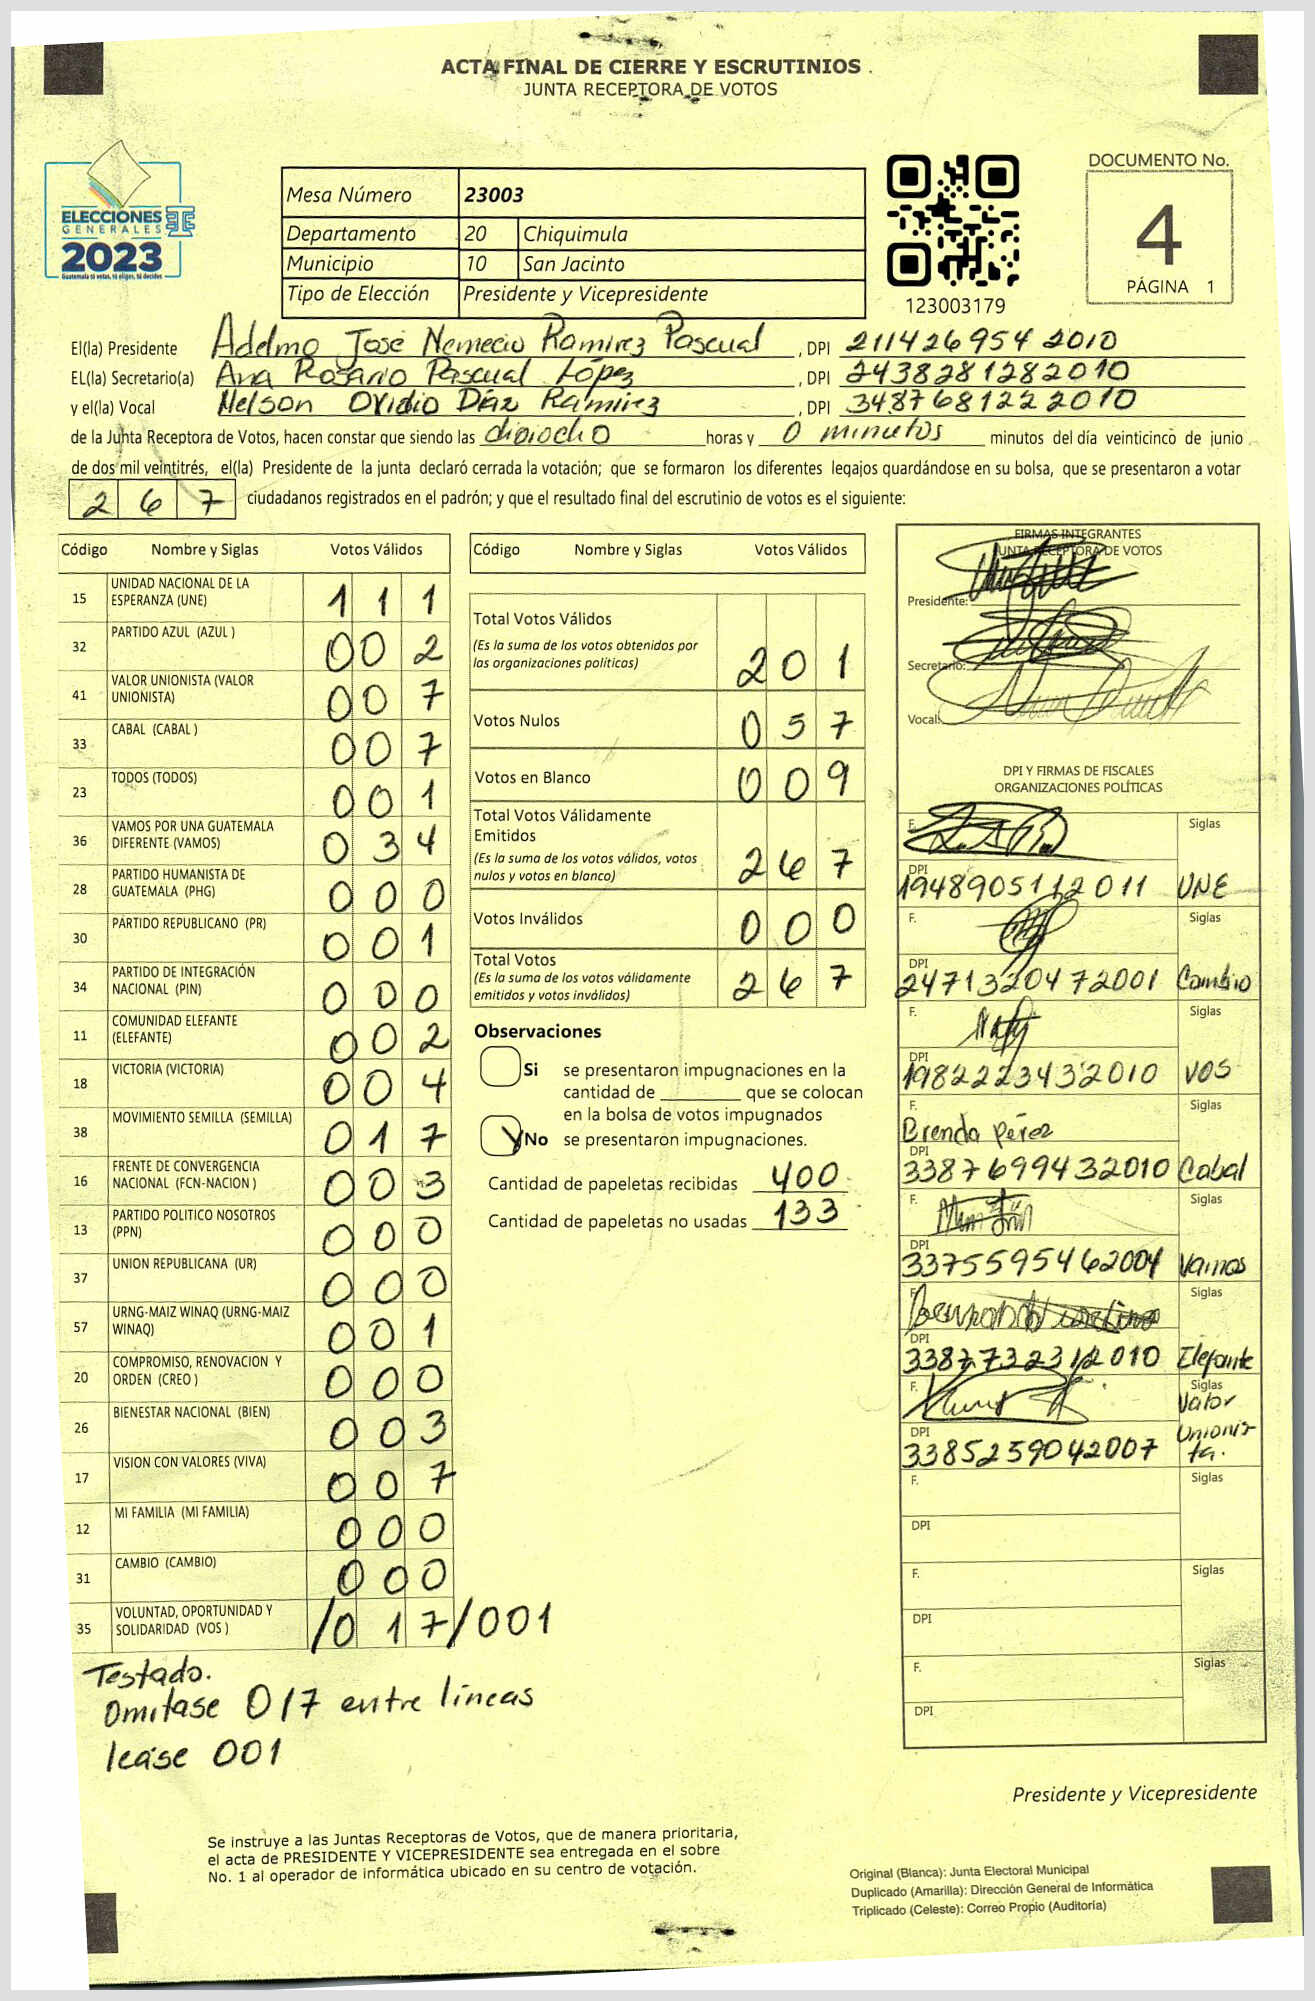 ACTA FINAL DE CIERRE Y ESCRUTINIOS
JUNTA RECEPTORA DE VOTOS
ELECCIONES
GENERALES
2023
Guatemala tú votas, tú eliges, tú decides
Mesa Número 23003
Departamento 20 Chiquimula
Municipio 10 San Jacinto
Tipo de Elección Presidente y Vicepresidente
123003179
DOCUMENTO No.
4
PÁGINA 1
El(la) Presidente Adelmo José Nemecio Ramirez Pascual , DPI 211426954 2010
EL(la) Secretario(a) Ana Rosario Pascual López , DPI 2438281282010
y el(la) Vocal Nelson Ovidio Díaz Ramirez , DPI 3487681222010
de la Junta Receptora de Votos, hacen constar que siendo las dieiocho horas y 0 minutos minutos del día veinticinco de junio
de dos mil veintitrés, el(la) Presidente de la junta declaró cerrada la votación; que se formaron los diferentes legajos guardándose en su bolsa, que se presentaron a votar
2 6 7 ciudadanos registrados en el padrón; y que el resultado final del escrutinio de votos es el siguiente:
Código Nombre y Siglas Votos Válidos
15 UNIDAD NACIONAL DE LA ESPERANZA (UNE) 1 1 1
32 PARTIDO AZUL (AZUL ) 0 0 2
41 VALOR UNIONISTA (VALOR UNIONISTA) 0 0 7
33 CABAL (CABAL ) 0 0 7
23 TODOS (TODOS) 0 0 1
36 VAMOS POR UNA GUATEMALA DIFERENTE (VAMOS) 0 3 4
28 PARTIDO HUMANISTA DE GUATEMALA (PHG) 0 0 0
30 PARTIDO REPUBLICANO (PR) 0 0 1
34 PARTIDO DE INTEGRACIÓN NACIONAL (PIN) 0 0 0
11 COMUNIDAD ELEFANTE (ELEFANTE) 0 0 2
18 VICTORIA (VICTORIA) 0 0 4
38 MOVIMIENTO SEMILLA (SEMILLA) 0 1 7
16 FRENTE DE CONVERGENCIA NACIONAL (FCN-NACION ) 0 0 3
13 PARTIDO POLITICO NOSOTROS (PPN) 0 0 0
37 UNION REPUBLICANA (UR) 0 0 0
57 URNG-MAIZ WINAQ (URNG-MAIZ WINAQ) 0 0 1
20 COMPROMISO, RENOVACION Y ORDEN (CREO ) 0 0 0
26 BIENESTAR NACIONAL (BIEN) 0 0 3
17 VISION CON VALORES (VIVA) 0 0 7
12 MI FAMILIA (MI FAMILIA) 0 0 0
31 CAMBIO (CAMBIO) 0 0 0
35 VOLUNTAD, OPORTUNIDAD Y SOLIDARIDAD (VOS ) /0 1 7/001
Testado.
Omitase 017 entre líneas
lease 001
Código Nombre y Siglas Votos Válidos
Total Votos Válidos
(Es la suma de los votos obtenidos por
las organizaciones políticas) 2 0 1
Votos Nulos 0 5 7
Votos en Blanco 0 0 9
Total Votos Válidamente
Emitidos
(Es la suma de los votos válidos, votos
nulos y votos en blanco) 2 6 7
Votos Inválidos 0 0 0
Total Votos
(Es la suma de los votos válidamente
emitidos y votos inválidos) 2 6 7
Observaciones
Si se presentaron impugnaciones en la
cantidad de ________ que se colocan
en la bolsa de votos impugnados
No se presentaron impugnaciones.
Cantidad de papeletas recibidas 400
Cantidad de papeletas no usadas 133
FIRMAS INTEGRANTES
JUNTA RECEPTORA DE VOTOS
Presidente:
Secretario:
Vocal:
DPI Y FIRMAS DE FISCALES
ORGANIZACIONES POLÍTICAS
F. Siglas
DPI
1948905112011 UNE
F. Siglas
DPI
2471320472001 Cambio
F. Siglas
DPI
1982223432010 VOS
F. Siglas
Brenda Pérez
DPI
3387699432010 Cabal
F. Siglas
DPI
3375595462004 Vamos
F. Siglas
DPI
3387732312010 Elefante
F. Siglas
DPI
3385259042007 Valor Unionista.
F. Siglas
DPI
F. Siglas
DPI
F. Siglas
DPI
Presidente y Vicepresidente
Se instruye a las Juntas Receptoras de Votos, que de manera prioritaria,
el acta de PRESIDENTE Y VICEPRESIDENTE sea entregada en el sobre
No. 1 al operador de informática ubicado en su centro de votación.
Original (Blanca): Junta Electoral Municipal
Duplicado (Amarilla): Dirección General de Informática
Triplicado (Celeste): Correo Propio (Auditoría)